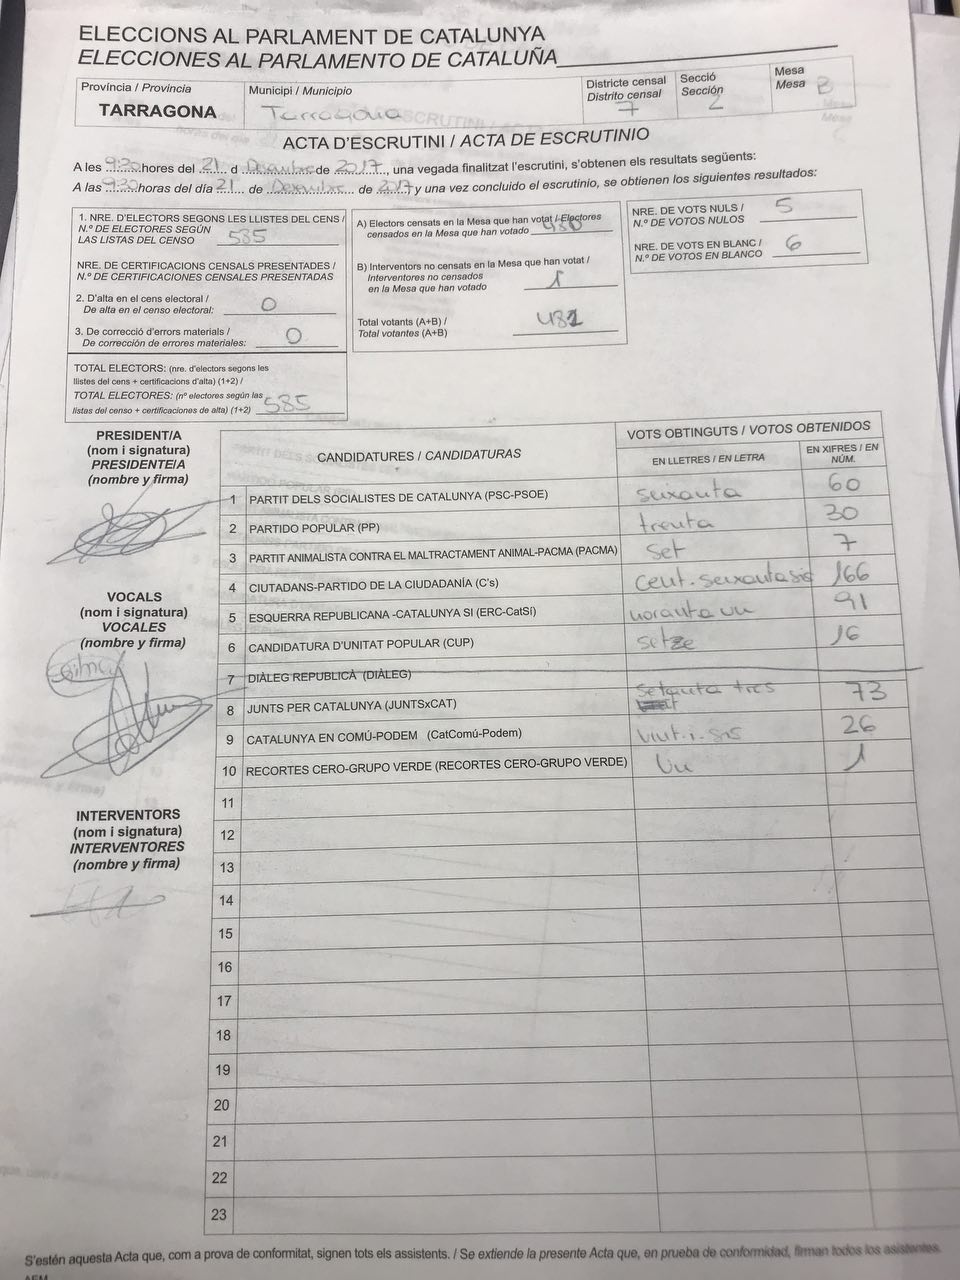 ELECCIONS AL PARLAMENT DE CATALUNYA
ELECCIONES AL PARLAMENTO DE CATALUÑA
Província / Provincia
TARRAGONA
Municipi / Municipio
Tarragona
Districte censal
Distrito censal
7
Secció
Sección
2
Mesa
Mesa B
ACTA D'ESCRUTINI / ACTA DE ESCRUTINIO
A les 9:30 hores del 21 d Desembre de 2017, una vegada finalitzat l'escrutini, s'obtenen els resultats següents:
A las 9:30 horas del día 21 de Desembre de 2017 y una vez concluido el escrutinio, se obtienen los siguientes resultados:
1. NRE. D'ELECTORS SEGONS LES LLISTES DEL CENS /
N.º DE ELECTORES SEGÚN
LAS LISTAS DEL CENSO 585
NRE. DE CERTIFICACIONS CENSALS PRESENTADES /
N.º DE CERTIFICACIONES CENSALES PRESENTADAS
2. D'alta en el cens electoral /
De alta en el censo electoral: 0
3. De correcció d'errors materials /
De corrección de errores materiales: 0
TOTAL ELECTORS: (nre. d'electors segons les
llistes del cens + certificacions d'alta) (1+2) /
TOTAL ELECTORES: (nº electores según las
listas del censo + certificaciones de alta) (1+2) 585
A) Electors censats en la Mesa que han votat / Electores
censados en la Mesa que han votado 480
B) Interventors no censats en la Mesa que han votat /
Interventores no censados
en la Mesa que han votado 1
Total votants (A+B) /
Total votantes (A+B) 481
NRE. DE VOTS NULS /
N.º DE VOTOS NULOS 5
NRE. DE VOTS EN BLANC /
N.º DE VOTOS EN BLANCO 6
PRESIDENT/A
(nom i signatura)
PRESIDENTE/A
(nombre y firma)
VOCALS
(nom i signatura)
VOCALES
(nombre y firma)
INTERVENTORS
(nom i signatura)
INTERVENTORES
(nombre y firma)
CANDIDATURES / CANDIDATURAS
VOTS OBTINGUTS / VOTOS OBTENIDOS
EN LLETRES / EN LETRA
EN XIFRES / EN
NÚM.
1 PARTIT DELS SOCIALISTES DE CATALUNYA (PSC-PSOE) seixanta 60
2 PARTIDO POPULAR (PP) trenta 30
3 PARTIT ANIMALISTA CONTRA EL MALTRACTAMENT ANIMAL-PACMA (PACMA) set 7
4 CIUTADANS-PARTIDO DE LA CIUDADANÍA (C's) cent-seixantasis 166
5 ESQUERRA REPUBLICANA -CATALUNYA SI (ERC-CatSí) noranta un 91
6 CANDIDATURA D'UNITAT POPULAR (CUP) setze 16
7 DIÀLEG REPUBLICÀ (DIÀLEG)
8 JUNTS PER CATALUNYA (JUNTSxCAT) Setanta tres 73
9 CATALUNYA EN COMÚ-PODEM (CatComú-Podem) vint-i-sis 26
10 RECORTES CERO-GRUPO VERDE (RECORTES CERO-GRUPO VERDE) Un 1
11
12
13
14
15
16
17
18
19
20
21
22
23
S'estén aquesta Acta que, com a prova de conformitat, signen tots els assistents. / Se extiende la presente Acta que, en prueba de conformidad, firman todos los asistentes.